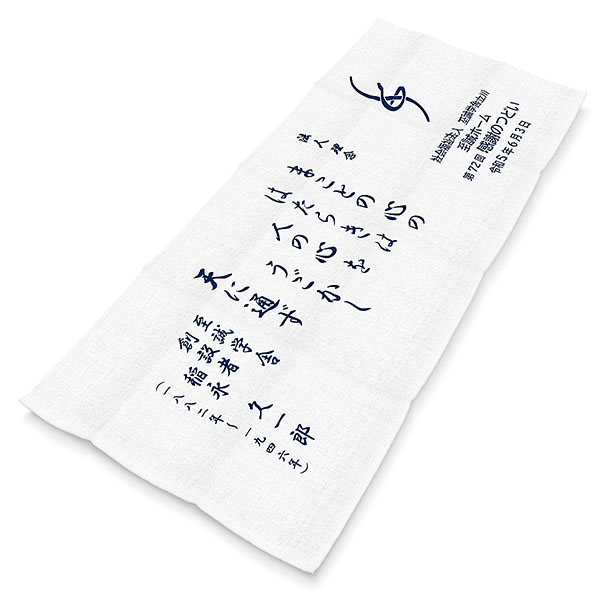 社会福祉法人 至誠学舎立川
至誠ホーム
第72回 感謝のつどい
令和5年6月3日
法人理念
まことの心の
はたらきは
人の心を
うごかし
天に通ず
至誠学舎
創設者
稲永 久一郎
(一八八二年～一九四六年)